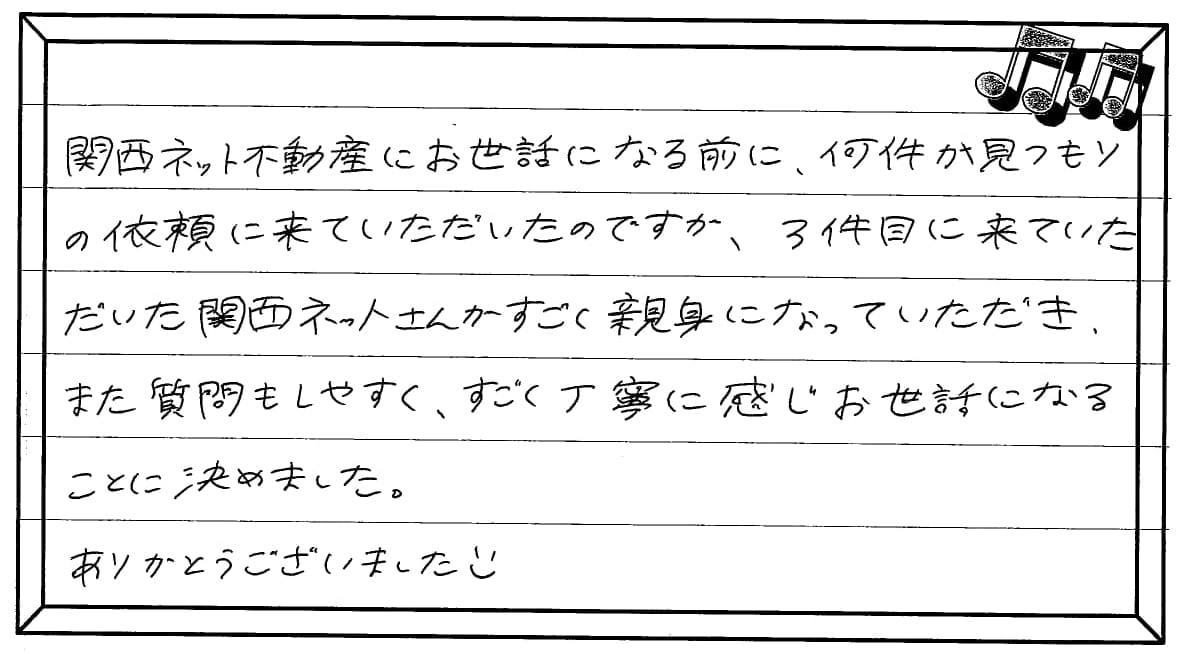 関西ネット不動産にお世話になる前に、何件か見つもり
の依頼に来ていただいたのですが、3件目に来ていた
だいた関西ネットさんがすごく親身になっていただき、
また質問もしやすく、すごく丁寧に感じお世話になる
ことに決めました。
ありがとうございました